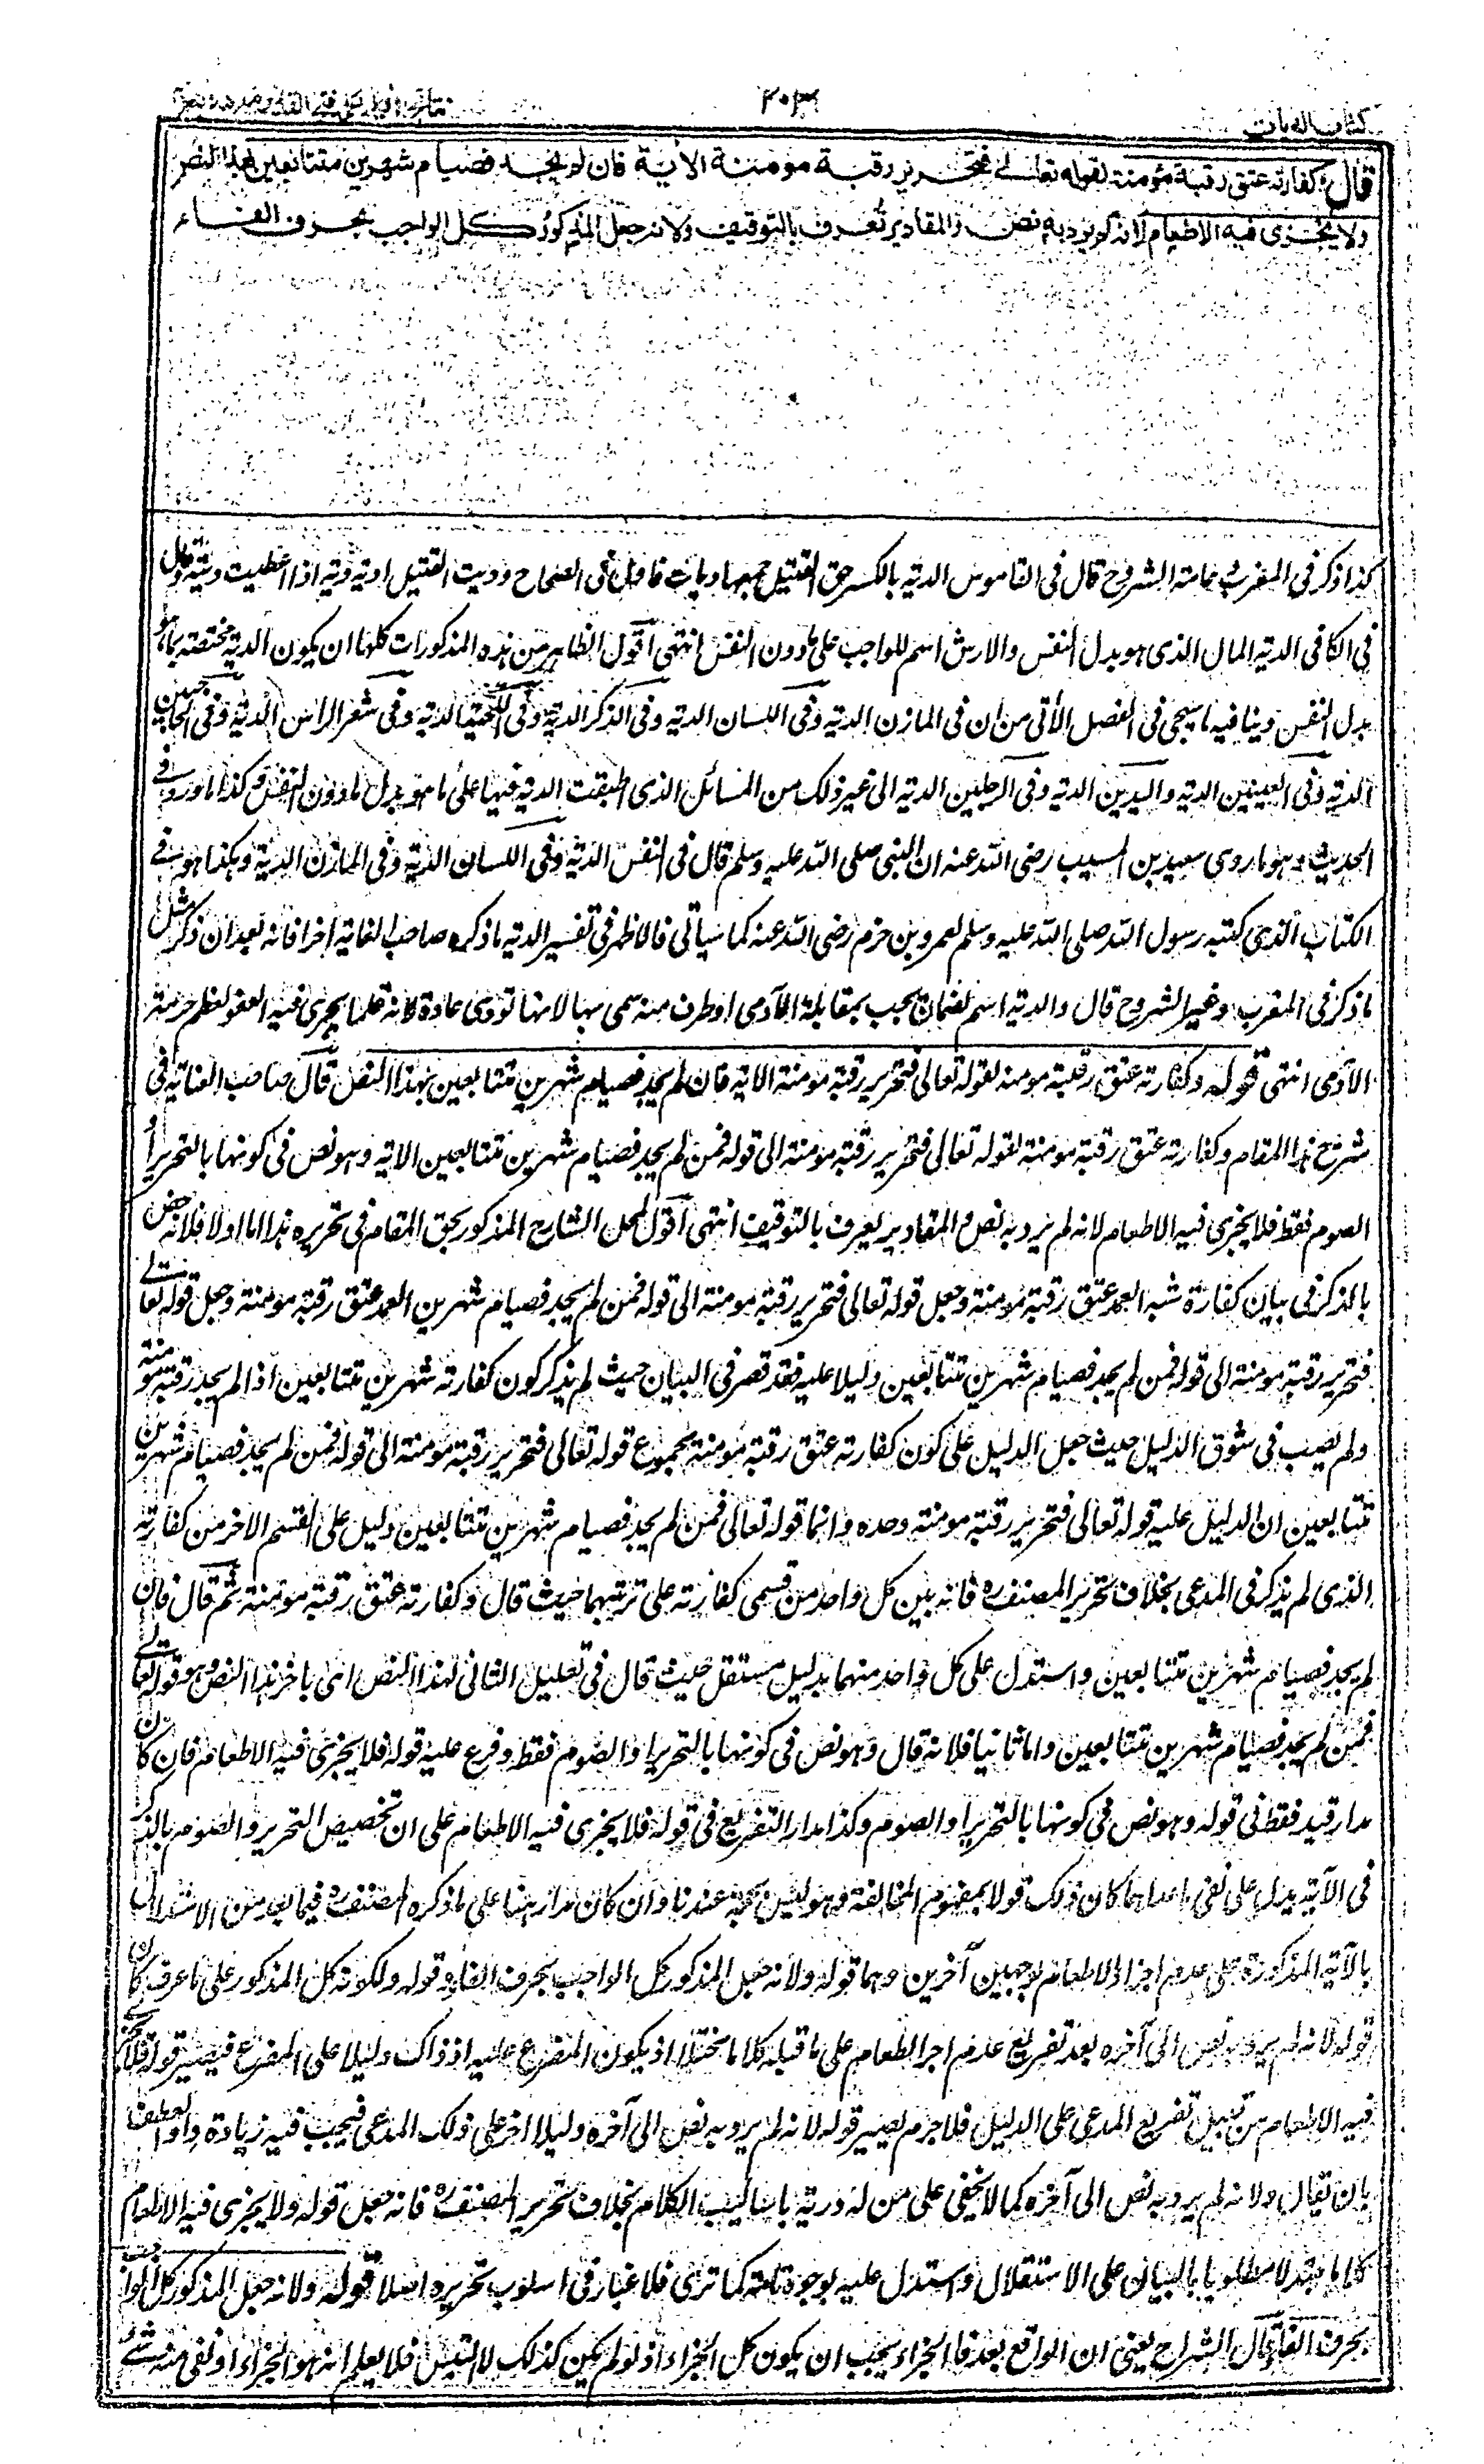 كتاب الديات
٢٠٣
نتائج الافكار تكملة فتح القدير مع هداية
قال وكفارته عتق رقبة مؤمنة لقوله تعالى فتحرير رقبة مومنة الأية فان لم يجد فصيام شهرين متتابعين بهذا النص
ولا يجزى فيه الاطعام لانه لم يرد به نص والمقادير تُعرف بالتوقيف ولانه جعل المذكور كل الواجب بحرف الفاء
كذا ذكر فى المغرب وعامة الشروح قال فى القاموس الدية بالكسر حق القتيل جمعها ديات وقال فى الصحاح وديت القتيل اديه دية اذا اعطيت ديته وقال
فى الكافى الدية المال الذى هو بدل النفس والارش اسم للواجب على مادون النفس انتهى اقول الظاهر من هذه المذكورات كلها ان يكون الدية مختصة بما هو
بدل النفس وينافيه ما سيجئ فى الفصل الأتى من ان فى المازن الدية وفى اللسان الدية وفى الذكر الدية وفى اللحية الدية وفى شعر الراس الدية وفى الحاجبين
الدية وفى العينين الدية واليدين الدية وفى الرجلين الدية الى غير ذلك من المسائل الذى اطبقت الدية فيها على ما هو بدل مادون النفس وكذا ما ورد فى
الحديث وهو ما روى سعيد بن المسيب رضى الله عنه ان النبى صلى الله عليه وسلم قال فى النفس الدية وفى اللسان الدية وفى المازن الدية وهكذا هو فى
الكتاب الذى كتبه رسول الله صلى الله عليه وسلم لعمرو بن حزم رضى الله عنه كما سياتى فالاظهر فى تفسير الدية ما ذكره صاحب الغاية اخرا فانه بعد ان ذكر مثل
ما ذكر فى المغرب وغير الشروح قال والدية اسم لضمان يجب بمقابلة الآدمى او طرف منه سمى بها لانها تودى عادة لانه قلما يجرى فيه العفو لعظم حرمة
الآدمى انتهى قوله وكفارته عتق رقبة مومنة لقوله تعالى فتحرير رقبة مومنة الاية فان لم يجد فصيام شهرين متتابعين بهذا النص قال صاحب العناية فى
شرح هذا المقام وكفارته عتق رقبة مومنة لقوله تعالى فتحرير رقبة مومنة الى قوله فمن لم يجد فصيام شهرين متتابعين الاية وهو نص فى كونها بالتحرير او
الصوم فقط فلا يجزى فيه الاطعام لانه لم يرد به نص والمقادير يعرف بالتوقيف انتهى اقول لم يحل الشارح المذكور بحق المقام فى تحريره هذا اما اولا فلانه خص
بالذكر فى بيان كفارة شبه العمد عتق رقبة مومنة وجعل قوله تعالى فتحرير رقبة مومنة الى قوله فمن لم يجد فصيام شهرين العمد عتق رقبة مومنة وجعل قوله تعالى
فتحرير رقبة مومنة الى قوله فمن لم يجد فصيام شهرين متتابعين دليلا عليه فقد قصر فى البيان حيث لم يذكر كون كفارته شهرين متتابعين اذا لم يجد رقبة مومنة
ولم يصب فى سوق الدليل حيث جعل الدليل على كون كفارته عتق رقبة مومنة بمجموع قوله تعالى فتحرير رقبة مومنة الى قوله فمن لم يجد فصيام شهرين
متتابعين ان الدليل عليه قوله تعالى فتحرير رقبة مومنة وحده وانما قوله تعالى فمن لم يجد فصيام شهرين متتابعين دليل على القسم الاخر من كفارته
الذى لم يذكر فى المدعى بخلاف تحرير المصنف ره فانه بين كل واحد من قسمى كفارته على ترتيبهما حيث قال وكفارته عتق رقبة مومنة ثم قال فان
لم يجد فصيام شهرين متتابعين واستدل على كل واحد منهما بدليل مستقل حيث قال فى تعليل الثانى لهذا النص اى باخر هذا النص وهو قوله تعالى
فمن لم يجد فصيام شهرين متتابعين واما ثانيا فلانه قال وهو نص فى كونها بالتحرير او الصوم فقط وفرع عليه قوله فلا يجزى فيه الاطعام فان كان
مدار قيد فقط فى قوله وهو نص فى كونها بالتحرير او الصوم وكذا مدار التفريع فى قوله فلا يجزى فيه الاطعام على ان تخصيص التحرير والصوم بالذكر
فى الآية يدل على نفى ما عداهما كان ذلك قولا بمفهوم المخالفة وهو ليس بحجة عندنا وان كان مدار هنا على ما ذكره المصنف ره فيما بعد من الاستدلال
بالآية المذكورة على عدم اجزاء الاطعام بوجهين آخرين وهما قوله ولانه جعل المذكور كل الواجب بحرف الفاء وقوله ولكونه كل المذكور على ما عرف كان
قوله لانه لم يرد به نص الى آخره بعد تفريع عدم اجزا الطعام على ما قبله كلاما مختلا اذ يكون المتفرع عليه اذ ذاك دليلا على المفرع فيصير قوله فلا يجزى
فيه الاطعام من قبيل تفريع المدعى على الدليل فلا جرم يصير قوله لانه لم يرد به نص الى آخره دليلا اخر على ذلك المدعى فيجب فيه زيادة واو العطف
بان يقال ولانه لم يرد به نص الى آخره كما لا يخفى على من له درية باساليب الكلام بخلاف تحرير المصنف ره فانه جعل قوله ولا يجزى فيه الاطعام
كلاما مبتدأ مطلوبا بالبيان على الاستقلال واستدل عليه بوجوه ثلثة كما ترى فلا غبار فى اسلوب تحريره اصلا قوله ولانه جعل المذكور كل الواجب
بحرف الفاء قال الشراح يعنى ان الواقع بعد فا الجزاء يجب ان يكون كل الجزاء اذ لو لم يكن كذلك لالتبس فلا يعلم انه هو الجزاء او بقى منه شئ